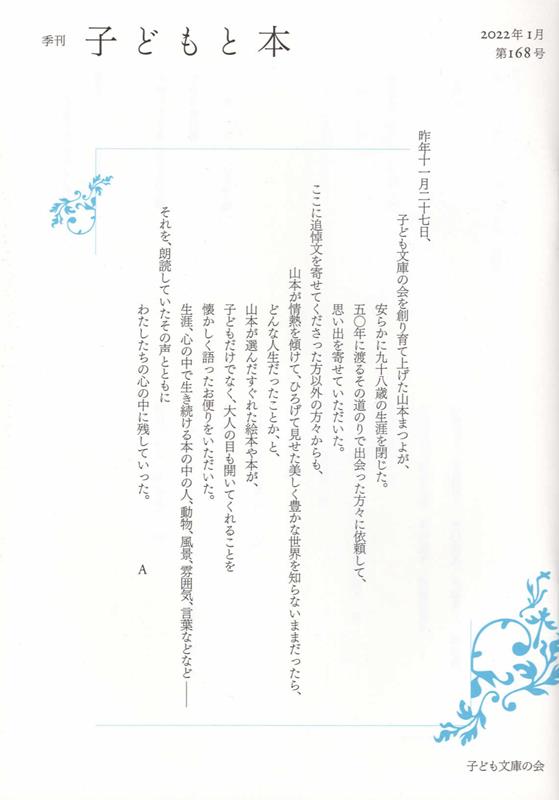 季刊 子どもと本
2022年1月
第168号
昨年十一月二十七日、
子ども文庫の会を創り育て上げた山本まつよが、
安らかに九十八歳の生涯を閉じた。
五〇年に渡るその道のりで出会った方々に依頼して、
思い出を寄せていただいた。
ここに追悼文を寄せてくださった方以外の方々からも、
山本が情熱を傾けて、ひろげて見せた美しく豊かな世界を知らないままだったら、
どんな人生だったことか、と、
山本が選んだすぐれた絵本や本が、
子どもだけでなく、大人の目も開いてくれることを
懐かしく語ったお便りをいただいた。
生涯、心の中で生き続ける本の中の人、動物、風景、雰囲気、言葉などなど――
それを、朗読していたその声とともに
わたしたちの心の中に残していった。
A
子ども文庫の会